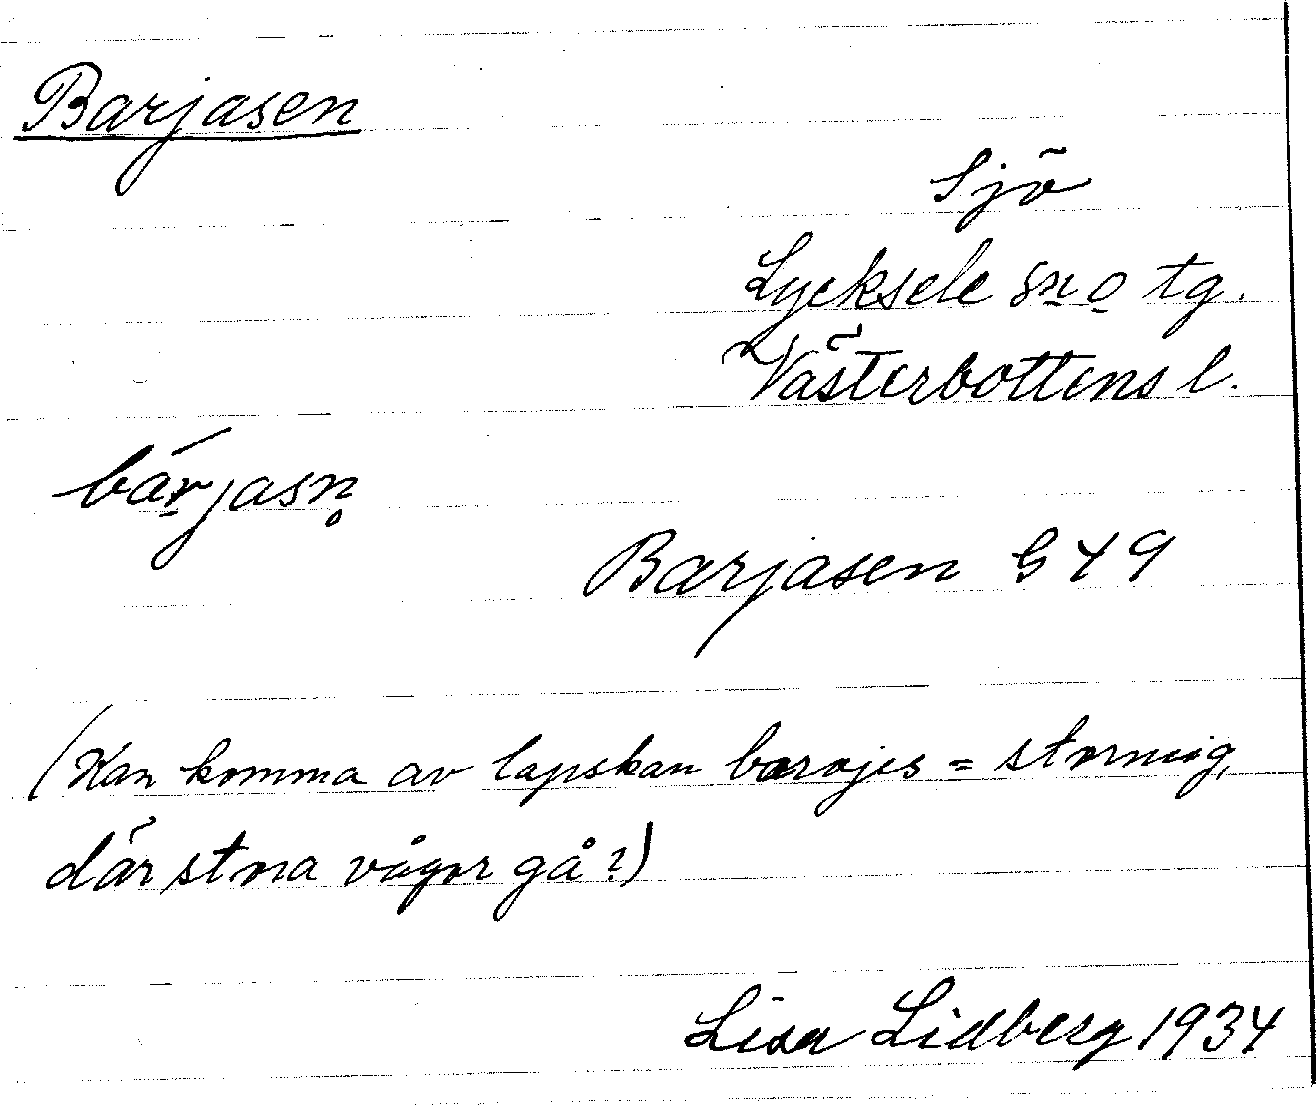 Barjasen
Sjö
Lycksele sn o tg.
Västerbottens l.
bárjasn̥
Barjasen G 49
(Kan komma av lapskan barajes = stormig,
där stora vågor gå?)
Lisa Lidberg 1934